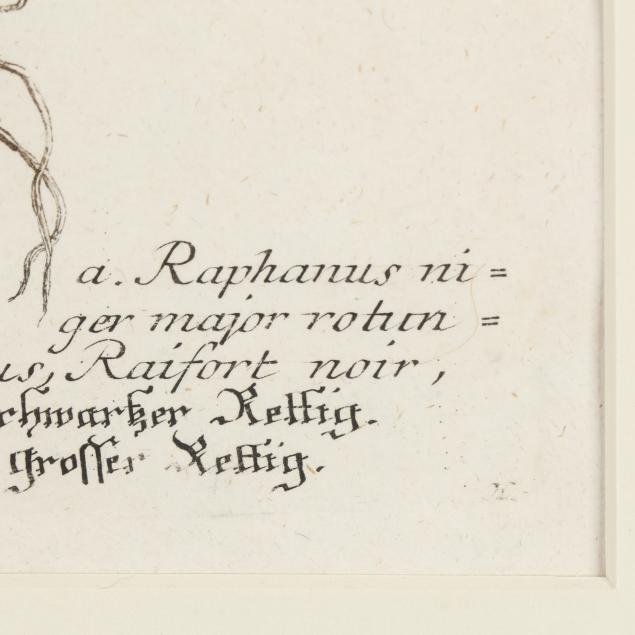 a. Raphanus ni=
ger major rotun=
us, Raifort noir,
chwartzer Rettig.
grosser Rettig.